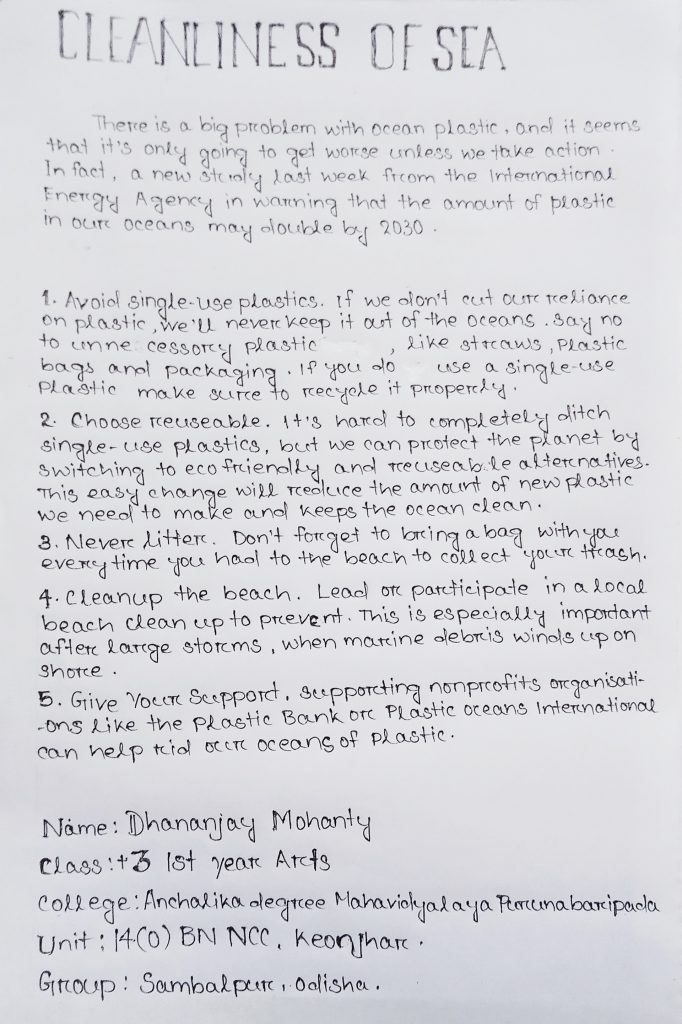 CLEANLINESS OF SEA
There is a big problem with ocean plastic, and it seems
that it's only going to get worse unless we take action.
In fact, a new study last week from the International
Energy Agency in warning that the amount of plastic
in our oceans may double by 2030.
1. Avoid single-use plastics. If we don't cut our reliance
on plastic, we'll never keep it out of the oceans. Say no
to unne cessory plastic , like straws, Plastic
bags and packaging. If you do use a single-use
Plastic make sure to recycle it properly.
2. Choose reuseable. It's hard to completely ditch
single-use plastics, but we can protect the planet by
switching to eco friendly and reuseable alternatives.
This easy change will reduce the amount of new plastic
we need to make and keeps the ocean clean.
3. Never litter. Don't forget to bring a bag with you
every time you had to the beach to collect your trash.
4. Cleanup the beach. Lead or participate in a local
beach clean up to prevent. This is especially important
after large storms, when marine debris winds up on
shore.
5. Give Your Support. supporting nonprofits organisati-
-ons like the Plastic Bank or Plastic oceans International
can help rid our oceans of plastic.
Name: Dhananjay Mohanty
Class:+3 1st year Arts
College: Anchalika degree Mahavidyalaya Purunabaripada
Unit: 14(O) BN NCC, Keonjhar.
Group: Sambalpur, Odisha.